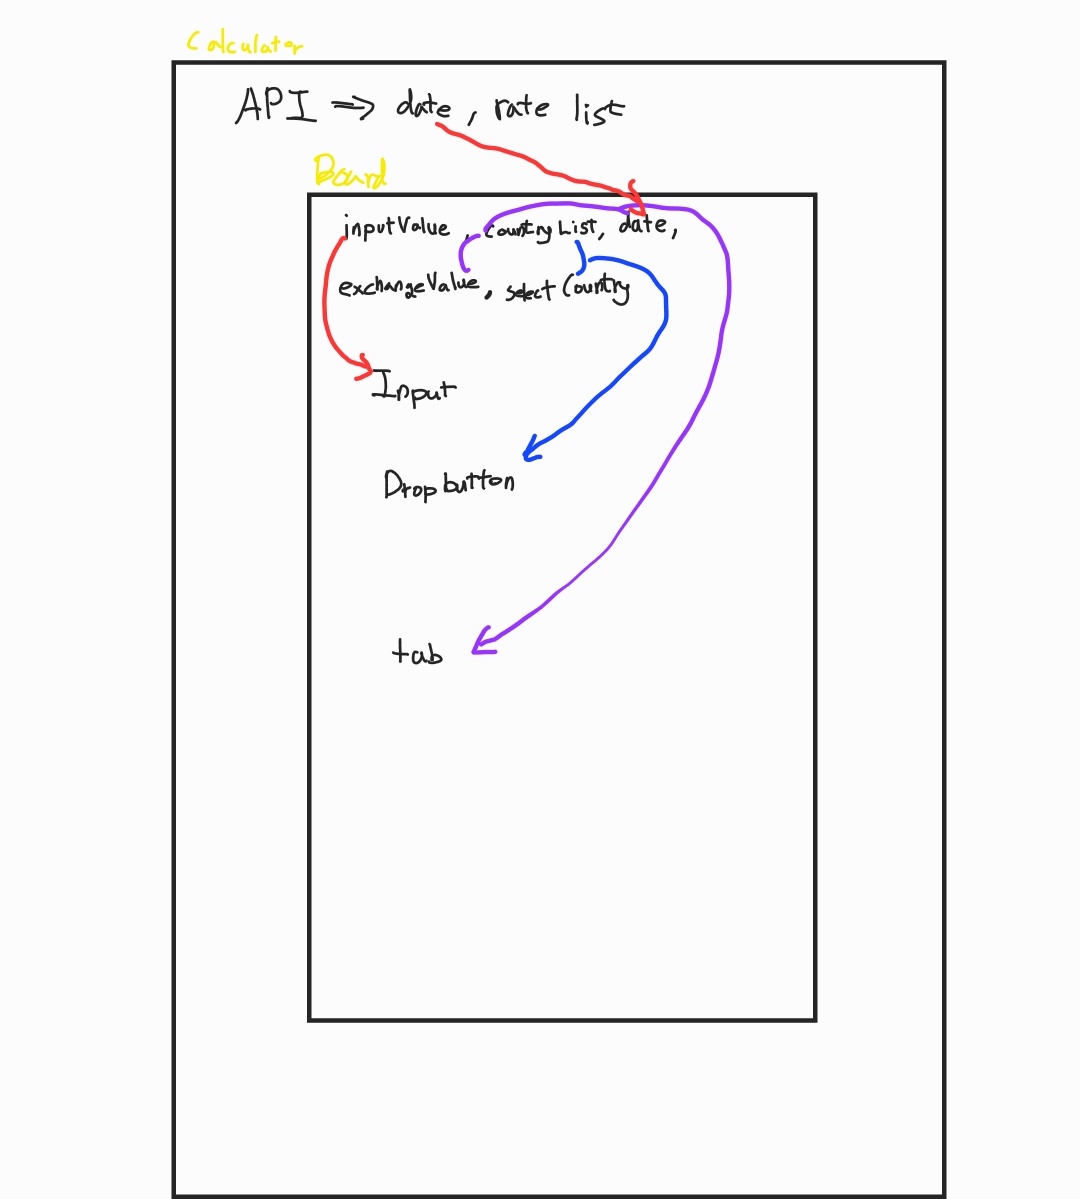 Calculator
API ⇒ date, rate list
Board
inputValue, CountryList, date,
exchangeValue, selectCountry
Input
Dropbutton
tab